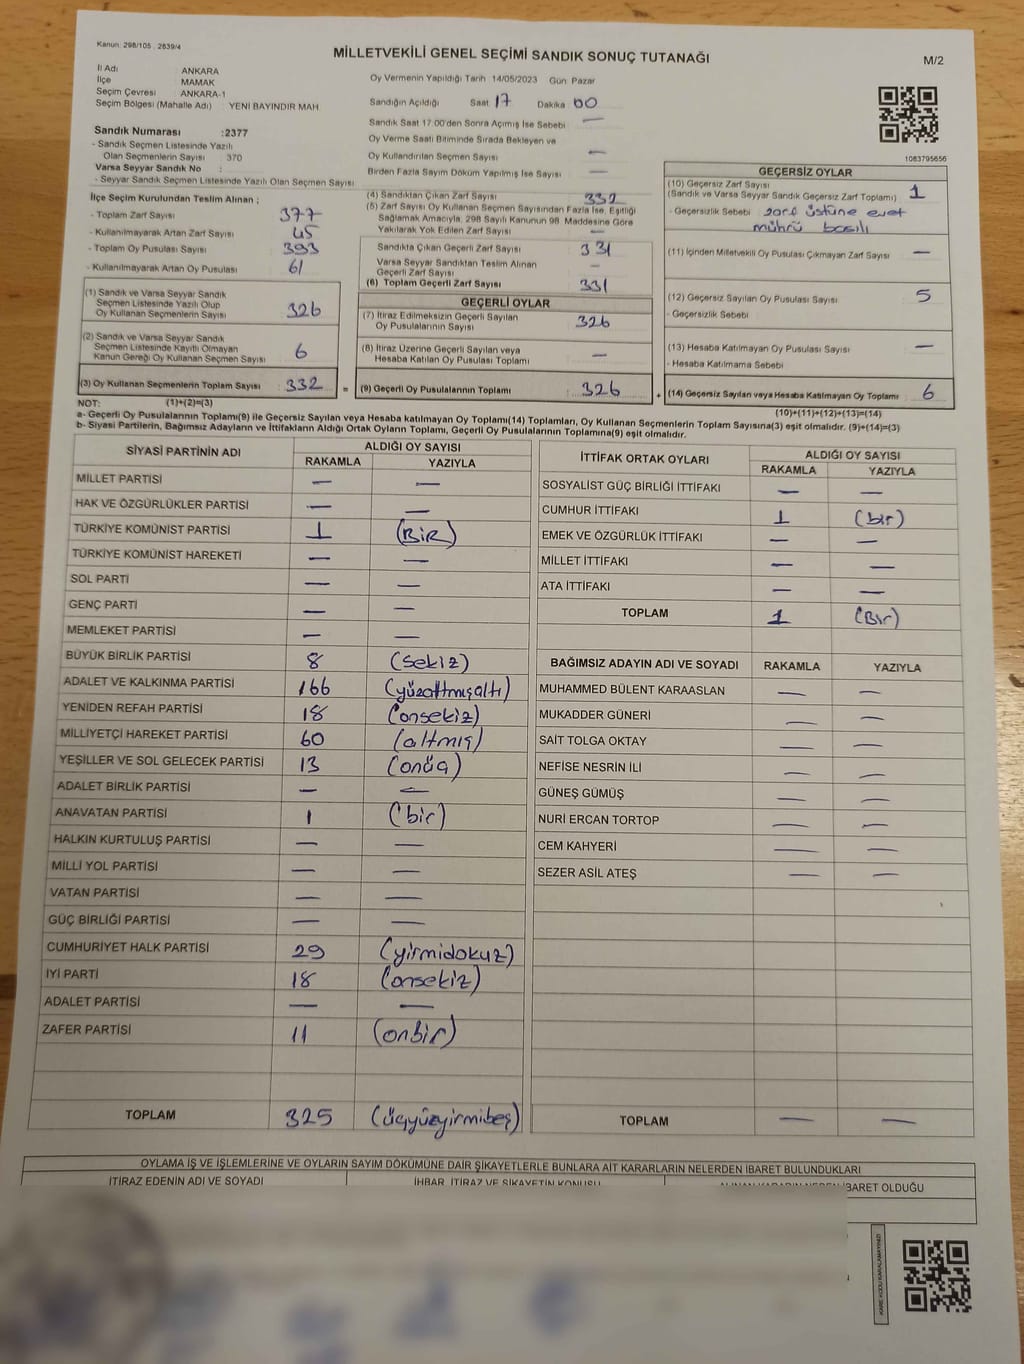 Kanun: 298/105 , 2839/4
MİLLETVEKİLİ GENEL SEÇİMİ SANDIK SONUÇ TUTANAĞI
M/2
İl Adı : ANKARA
İlçe : MAMAK
Seçim Çevresi : ANKARA-1
Seçim Bölgesi (Mahalle Adı) YENİ BAYINDIR MAH
Oy Vermenin Yapıldığı Tarih :14/05/2023 Gün: Pazar
Sandığın Açıldığı Saat 17 Dakika 00
Sandık Saat 17:00'den Sonra Açımış İse Sebebi —
Oy Verme Saati Bitiminde Sırada Bekleyen ve
Oy Kullandırılan Seçmen Sayısı —
Birden Fazla Sayım Döküm Yapılmış İse Sayısı : —
Sandık Numarası :2377
- Sandık Seçmen Listesinde Yazılı
Olan Seçmenlerin Sayısı : 370
Varsa Seyyar Sandık No :
- Seyyar Sandık Seçmen Listesinde Yazılı Olan Seçmen Sayısı :
1083795656
İlçe Seçim Kurulundan Teslim Alınan ;
- Toplam Zarf Sayısı : 377
- Kullanılmayarak Artan Zarf Sayısı : 45
- Toplam Oy Pusulası Sayısı : 393
- Kullanılmayarak Artan Oy Pusulası : 61
(1) Sandık ve Varsa Seyyar Sandık
Seçmen Listesinde Yazılı Olup
Oy Kullanan Seçmenlerin Sayısı : 326
(2) Sandık ve Varsa Seyyar Sandık
Seçmen Listesinde Kayıtlı Olmayan
Kanun Gereği Oy Kullanan Seçmen Sayısı : 6
(3) Oy Kullanan Seçmenlerin Toplam Sayısı : 332 =
(4) Sandıktan Çıkan Zarf Sayısı : 332
(5) Zarf Sayısı Oy Kullanan Seçmen Sayısından Fazla İse, Eşitliği
Sağlamak Amacıyla, 298 Sayılı Kanunun 98. Maddesine Göre
Yakılarak Yok Edilen Zarf Sayısı : —
Sandıkta Çıkan Geçerli Zarf Sayısı : 331
Varsa Seyyar Sandıktan Teslim Alınan
Geçerli Zarf Sayısı : —
(6) Toplam Geçerli Zarf Sayısı : 331
GEÇERLİ OYLAR
(7) İtiraz Edilmeksizin Geçerli Sayılan
Oy Pusulalarının Sayısı : 326
(8) İtiraz Üzerine Geçerli Sayılan veya
Hesaba Katılan Oy Pusulası Toplamı : —
(9) Geçerli Oy Pusulalarının Toplamı : 326 +
GEÇERSİZ OYLAR
(10) Geçersiz Zarf Sayısı : 1
(Sandık ve Varsa Seyyar Sandık Geçersiz Zarf Toplamı)
- Geçersizlik Sebebi : zarf üstüne evet
mührü basılı
(11) İçinden Milletvekili Oy Pusulası Çıkmayan Zarf Sayısı : —
(12) Geçersiz Sayılan Oy Pusulası Sayısı : 5
- Geçersizlik Sebebi :
(13) Hesaba Katılmayan Oy Pusulası Sayısı : —
- Hesaba Katılmama Sebebi :
(14) Geçersiz Sayılan veya Hesaba Katılmayan Oy Toplamı : 6
NOT: (1)+(2)=(3)
(10)+(11)+(12)+(13)=(14)
a- Geçerli Oy Pusulalarının Toplamı(9) ile Geçersiz Sayılan veya Hesaba katılmayan Oy Toplamı(14) Toplamları, Oy Kullanan Seçmenlerin Toplam Sayısına(3) eşit olmalıdır. (9)+(14)=(3)
b- Siyasi Partilerin, Bağımsız Adayların ve İttifakların Aldığı Ortak Oyların Toplamı, Geçerli Oy Pusulalarının Toplamına(9) eşit olmalıdır.
SİYASİ PARTİNİN ADI ALDIĞI OY SAYISI
RAKAMLA YAZIYLA
MİLLET PARTİSİ — —
HAK VE ÖZGÜRLÜKLER PARTİSİ — —
TÜRKİYE KOMÜNİST PARTİSİ 1 (BİR)
TÜRKİYE KOMÜNİST HAREKETİ — —
SOL PARTİ — —
GENÇ PARTİ — —
MEMLEKET PARTİSİ — —
BÜYÜK BİRLİK PARTİSİ 8 (sekiz)
ADALET VE KALKINMA PARTİSİ 166 (yüzaltmışaltı)
YENİDEN REFAH PARTİSİ 18 (onsekiz)
MİLLİYETÇİ HAREKET PARTİSİ 60 (altmış)
YEŞİLLER VE SOL GELECEK PARTİSİ 13 (onüç)
ADALET BİRLİK PARTİSİ — —
ANAVATAN PARTİSİ 1 (bir)
HALKIN KURTULUŞ PARTİSİ — —
MİLLİ YOL PARTİSİ — —
VATAN PARTİSİ — —
GÜÇ BİRLİĞİ PARTİSİ — —
CUMHURİYET HALK PARTİSİ 29 (yirmidokuz)
İYİ PARTİ 18 (onsekiz)
ADALET PARTİSİ — —
ZAFER PARTİSİ 11 (onbir)
TOPLAM 325 (üçyüzyirmibeş)
İTTİFAK ORTAK OYLARI ALDIĞI OY SAYISI
RAKAMLA YAZIYLA
SOSYALİST GÜÇ BİRLİĞİ İTTİFAKI — —
CUMHUR İTTİFAKI 1 (bir)
EMEK VE ÖZGÜRLÜK İTTİFAKI — —
MİLLET İTTİFAKI — —
ATA İTTİFAKI — —
TOPLAM 1 (Bir)
BAĞIMSIZ ADAYIN ADI VE SOYADI RAKAMLA YAZIYLA
MUHAMMED BÜLENT KARAASLAN — —
MUKADDER GÜNERİ — —
SAİT TOLGA OKTAY — —
NEFİSE NESRİN İLİ — —
GÜNEŞ GÜMÜŞ — —
NURİ ERCAN TORTOP — —
CEM KAHYERİ — —
SEZER ASİL ATEŞ — —
TOPLAM — —
OYLAMA İŞ VE İŞLEMLERİNE VE OYLARIN SAYIM DÖKÜMÜNE DAİR ŞİKAYETLERLE BUNLARA AİT KARARLARIN NELERDEN İBARET BULUNDUKLARI
İTİRAZ EDENİN ADI VE SOYADI İHBAR, İTİRAZ VE ŞİKAYETİN KONUSU İBARET OLDUĞU
KARE KODU KARALAMAYINIZ!